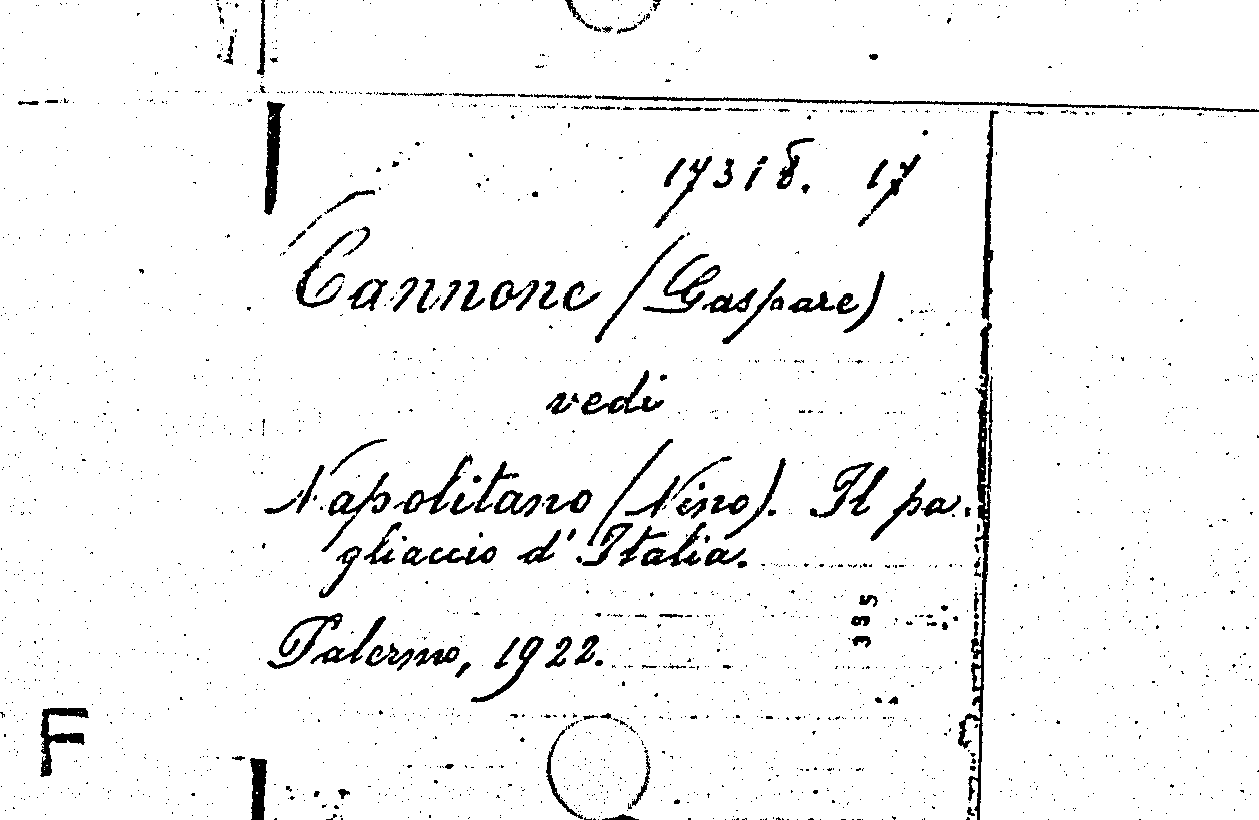 17318. 17
Cannone (Gaspare)
vedi
Napolitano (Nino). Il pa-
gliaccio d'Italia.
395
Palermo, 1922.
F